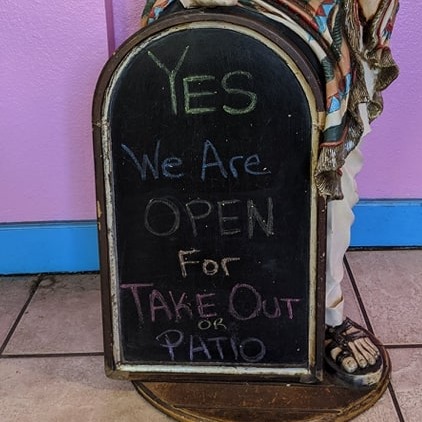 YES
We Are
OPEN
For
TAKE OUT
OR
PATIO